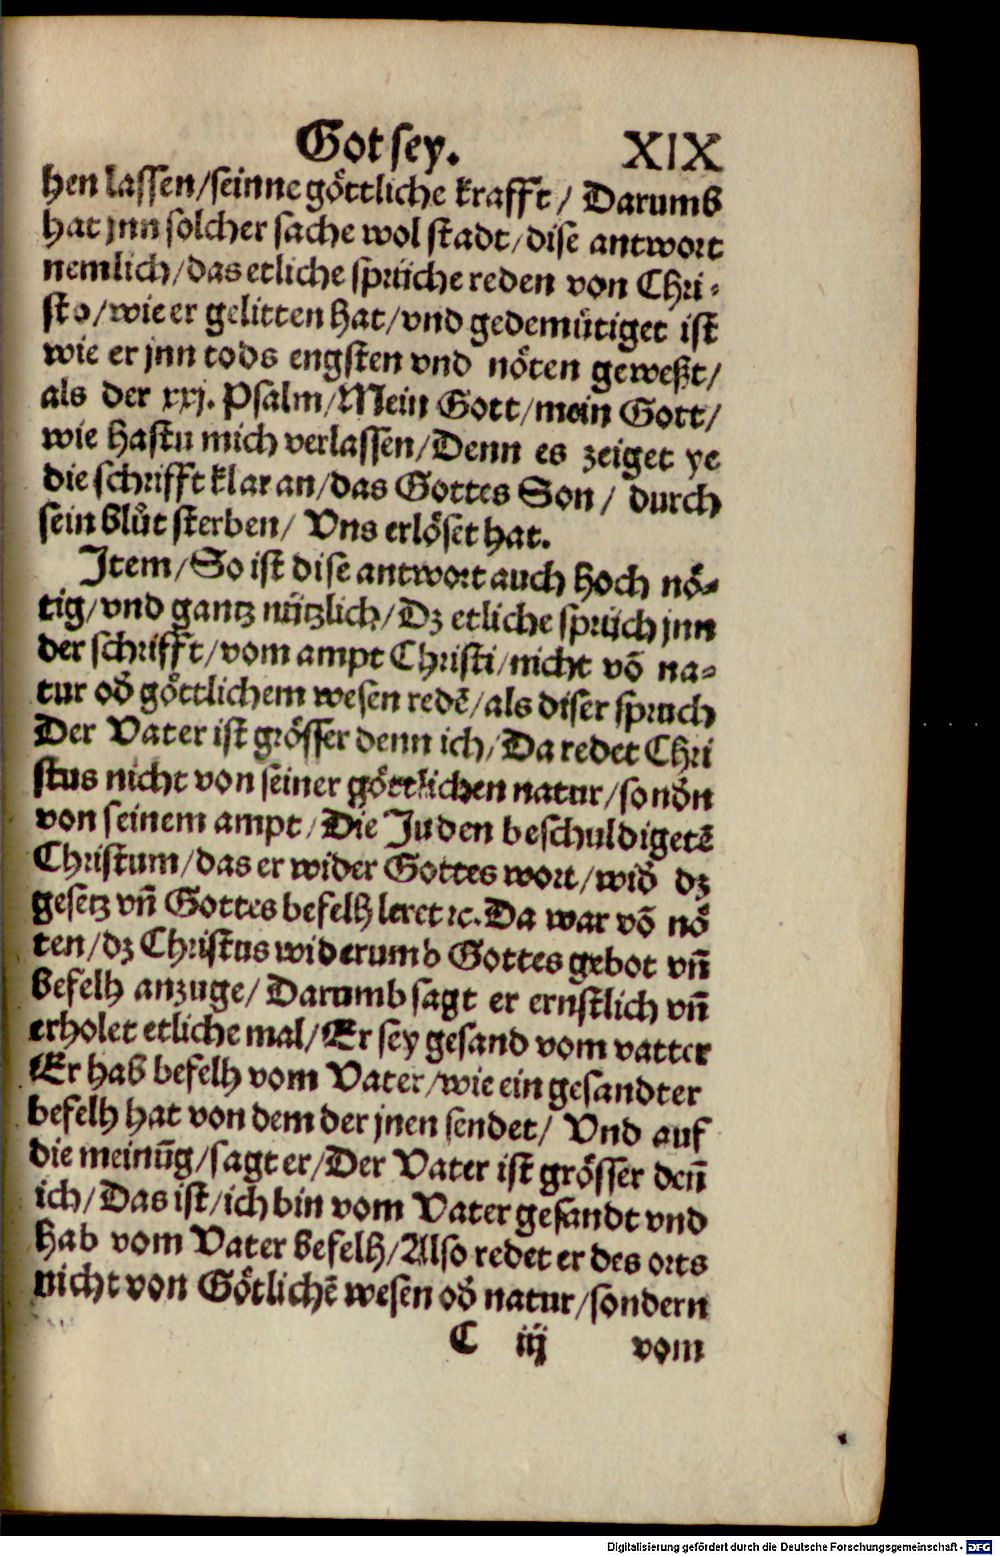 Got sey. XIX
hen lassen/seinne göttliche krafft/ Darumb
hat jnn solcher sache wol stadt/dise antwort
nemlich/das etliche sprüche reden von Chri-
sto/wie er gelitten hat/vnd gedemütiget ist
wie er jnn tods engsten vnd nöten geweßt/
als der xxj. Psalm/Mein Gott/mein Gott/
wie hastu mich verlassen/Denn es zeiget ye
die schrifft klar an/das Gottes Son/ durch
sein blůt sterben/ Vns erlöset hat.
Jtem/So ist dise antwort auch hoch nö-
tig/vnd gantz nützlich/Dz etliche sprüch jnn
der schrifft/vom ampt Christi/nicht võ na-
tur od̃ göttlichem wesen redẽ/als diser spruch
Der Vater ist grösser denn ich/Da redet Chri
stus nicht von seiner göttlichen natur/sond̃n
von seinem ampt/Die Juden beschuldigetẽ
Christum/das er wider Gottes wort/wid̃ dz
gesetz vñ Gottes befelh leret ꝛc. Da war võ nö
ten/dz Christus widerumb Gottes gebot vñ
befelh anzuge/Darumb sagt er ernstlich vñ
erholet etliche mal/Er sey gesand vom vatter
Er hab befelh vom Vater/wie ein gesandter
befelh hat von dem der jnen sendet/ Vnd auf
die meinũg/sagt er/Der Vater ist grösser deñ
ich/Das ist/ich bin vom Vater gesandt vnd
hab vom Vater befelh/Also redet er des orts
nicht von Götlichẽ wesen od̃ natur/sondern
C iij vom
Digitalisierung gefördert durch die Deutsche Forschungsgemeinschaft - DFG